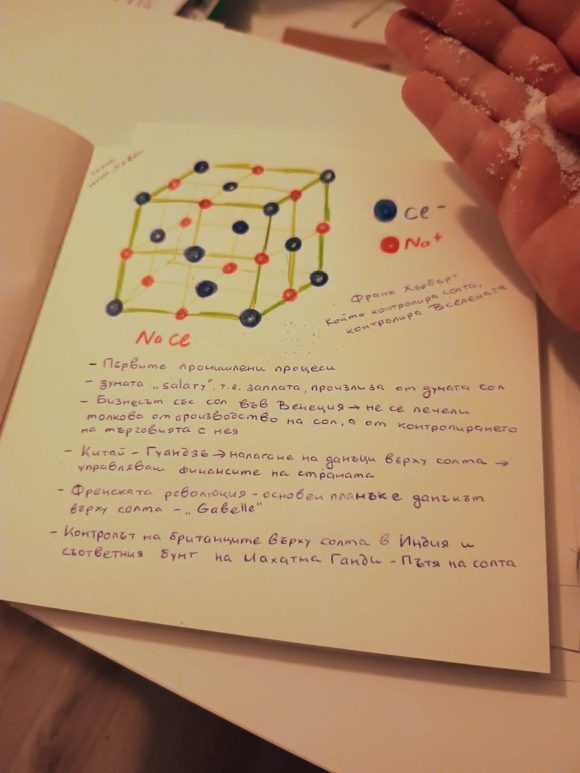 Cl⁻
Na⁺
Франк Хърбърт
Който контролира солта,
контролира Вселената
NaCl
- Първите промишлени процеси
- думата „salary", т.е. заплата, произлиза от думата сол
- Бизнесът със сол във Венеция → не се печели
толкова от производство на сол, а от контролирането
на търговията с нея
- Китай - Гуандзъ → налагане на данъци върху солта →
управляващ финансите на страната
- Френската революция - основен пламък е данъкът
върху солта - „Gabelle"
- Контролът на британците върху солта в Индия и
съответния бунт на Махатма Ганди - Пътя на солта